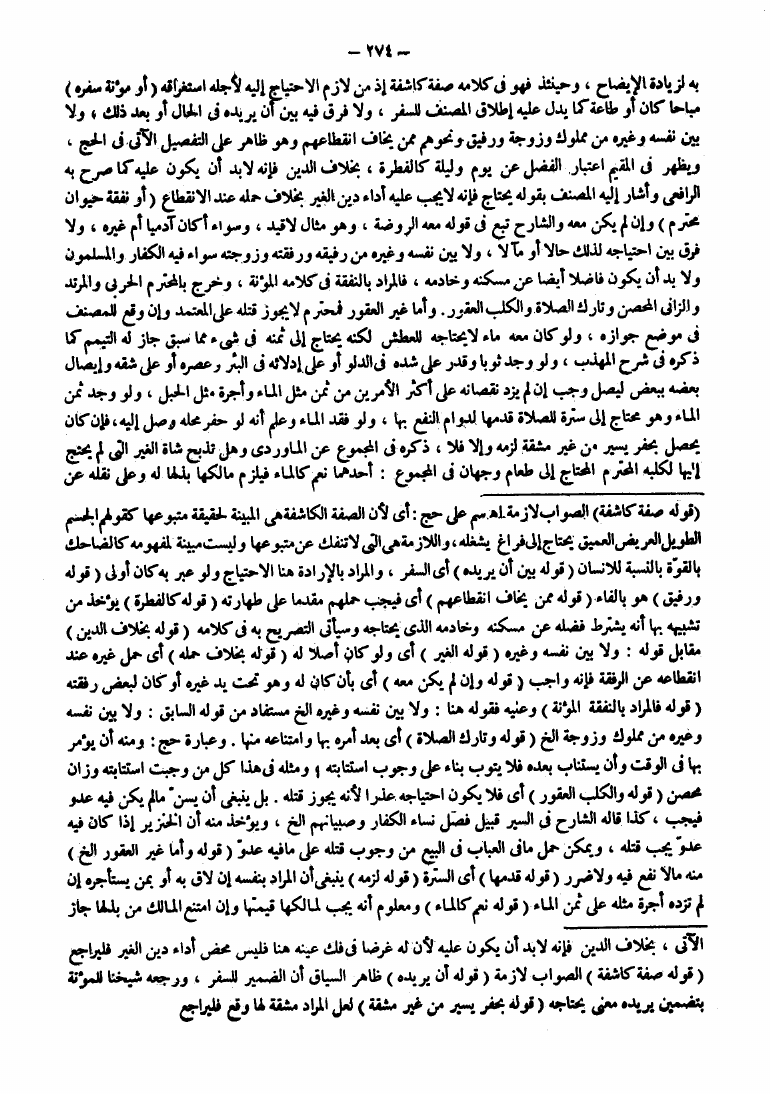 — ٢٧٤ —
به لزيادة الإيضاح ، وحينئذ فهو فى كلامه صفة كاشفة إذ من لازم الاحتياج إليه لأجله استغراقه ( أو مؤنة سفره )
مباحا كان أو طاعة كما يدل عليه إطلاق المصنف للسفر ، ولا فرق فيه بين أن يريده فى الحال أو بعد ذلك ؛ ولا
بين نفسه وغيره من مملوك وزوجة ورفيق ونحوهم ممن يخاف انقطاعهم وهو ظاهر على التفصيل الآتى فى الحج ،
ويظهر فى المقيم اعتبار الفضل عن يوم وليلة كالفطرة ، بخلاف الدين فإنه لابد أن يكون عليه كما صرح به
الرافعى وأشار إليه المصنف بقوله يحتاج فإنه لايجب عليه أداء دين الغير بخلاف حمله عند الانقطاع ( أو نفقة حيوان
محترم ) وإن لم يكن معه والشارح تبع فى قوله معه الروضة ، وهو مثال لاقيد ، وسواء أكان آدميا أم غيره ، ولا
فرق بين احتياجه لذلك حالا أو مآلا ، ولا بين نفسه وغيره من رفيقه ورفقته وزوجته سواء فيه الكفار والمسلمون
ولا بد أن يكون فاضلا أيضا عن مسكنه وخادمه ، فالمراد بالنفقة فى كلامه المؤنة ، وخرج بالمحترم الحربى والمرتد
والزانى المحصن وتارك الصلاة والكلب العقور . وأما غير العقور فمحترم لايجوز قتله على المعتمد وإن وقع للمصنف
فى موضع جوازه ، ولو كان معه ماء لايحتاجه للعطش لكنه يحتاج إلى ثمنه فى شىء مما سبق جاز له التيمم كما
ذكره فى شرح المهذب ، ولو وجد ثوبا وقدر على شده فى الدلو أو على إدلائه فى البئر وعصره أو على شقه وإيصال
بعضه ببعض ليصل وجب إن لم يزد نقصانه على أكثر الأمرين من ثمن مثل الماء وأجرة مثل الحبل ، ولو وجد ثمن
الماء وهو محتاج إلى سترة للصلاة قدمها لدوام النفع بها ، ولو فقد الماء وعلم أنه لو حفر محله وصل إليه ، فإن كان
يحصل بحفر يسير من غير مشقة لزمه وإلا فلا ، ذكره فى المجموع عن الماوردى وهل تذبح شاة الغير التى لم يحتج
إليها لكلبه المحترم المحتاج إلى طعام وجهان فى المجموع : أحدهما نعم كالماء فيلزم مالكها بذلها له وعلى نقله عن
(قوله صفة كاشفة) الصواب لازمة اهـ سم على حج : أى لأن الصفة الكاشفة هى المبينة لحقيقة متبوعها كقولهم الجسم
الطويل العريض العميق يحتاج إلى فراغ يشغله ، واللازمة هى التى لاتنفك عن متبوعها وليست مبينة لمفهومه كالضاحك
بالقوّة بالنسبة للانسان ( قوله بين أن يريده ) أى السفر ، والمراد بالإرادة هنا الاحتياج ولو عبر به كان أولى ( قوله
ورفيق ) هو بالفاء ( قوله ممن يخاف انقطاعهم ) أى فيجب حملهم مقدما على طهارته ( قوله كالفطرة ) يؤخذ من
تشبيهه بها أنه يشترط فضله عن مسكنه وخادمه الذى يحتاجه وسيأتى التصريح به فى كلامه ( قوله بخلاف الدين )
مقابل قوله : ولا بين نفسه وغيره ( قوله الغير ) أى ولو كان أصلا له ( قوله بخلاف حمله ) أى حمل غيره عند
انقطاعه عن الرفقة فإنه واجب ( قوله وإن لم يكن معه ) أى بأن كان له وهو تحت يد غيره أو كان لبعض رفقته
( قوله فالمراد بالنفقة المؤنة ) وعليه فقوله هنا : ولا بين نفسه وغيره الخ مستفاد من قوله السابق : ولا بين نفسه
وغيره من مملوك وزوجة الخ ( قوله وتارك الصلاة ) أى بعد أمره بها وامتناعه منها . وعبارة حج : ومنه أن يؤمر
بها فى الوقت وأن يستتاب بعده فلا يتوب بناء على وجوب استتابته ؛ ومثله فى هذا كل من وجبت استتابته وزان
محصن ( قوله والكلب العقور ) أى فلا يكون احتياجه عذرا لأنه يجوز قتله . بل ينبغى أن يسنّ مالم يكن فيه عدو
فيجب ، كذا قاله الشارح فى السير قبيل فصل نساء الكفار وصبيانهم الخ ، ويؤخذ منه أن الخنزير إذا كان فيه
عدوّ يجب قتله ، ويمكن حمل مافى العباب فى البيع من وجوب قتله على مافيه عدوّ ( قوله وأما غير العقور الخ )
منه مالا نفع فيه ولا ضرر ( قوله قدمها ) أى السترة ( قوله لزمه ) ينبغى أن المراد بنفسه إن لاق به أو بمن يستأجره إن
لم تزده أجرة مثله على ثمن الماء ( قوله نعم كالماء ) ومعلوم أنه يجب لمالكها قيمتها وإن امتنع المالك من بذلها جاز
الآتى ، بخلاف الدين فإنه لابد أن يكون عليه لأن له غرضا فى فك عينه هنا فليس محض أداء دين الغير فليراجع
( قوله صفة كاشفة ) الصواب لازمة ( قوله أن يريده ) ظاهر السياق أن الضمير للسفر ، ورجعه شيخنا للمؤنة
بتضمين يريده معنى يحتاجه ( قوله بحفر يسير من غير مشقة ) لعل المراد مشقة لها وقع فليراجع